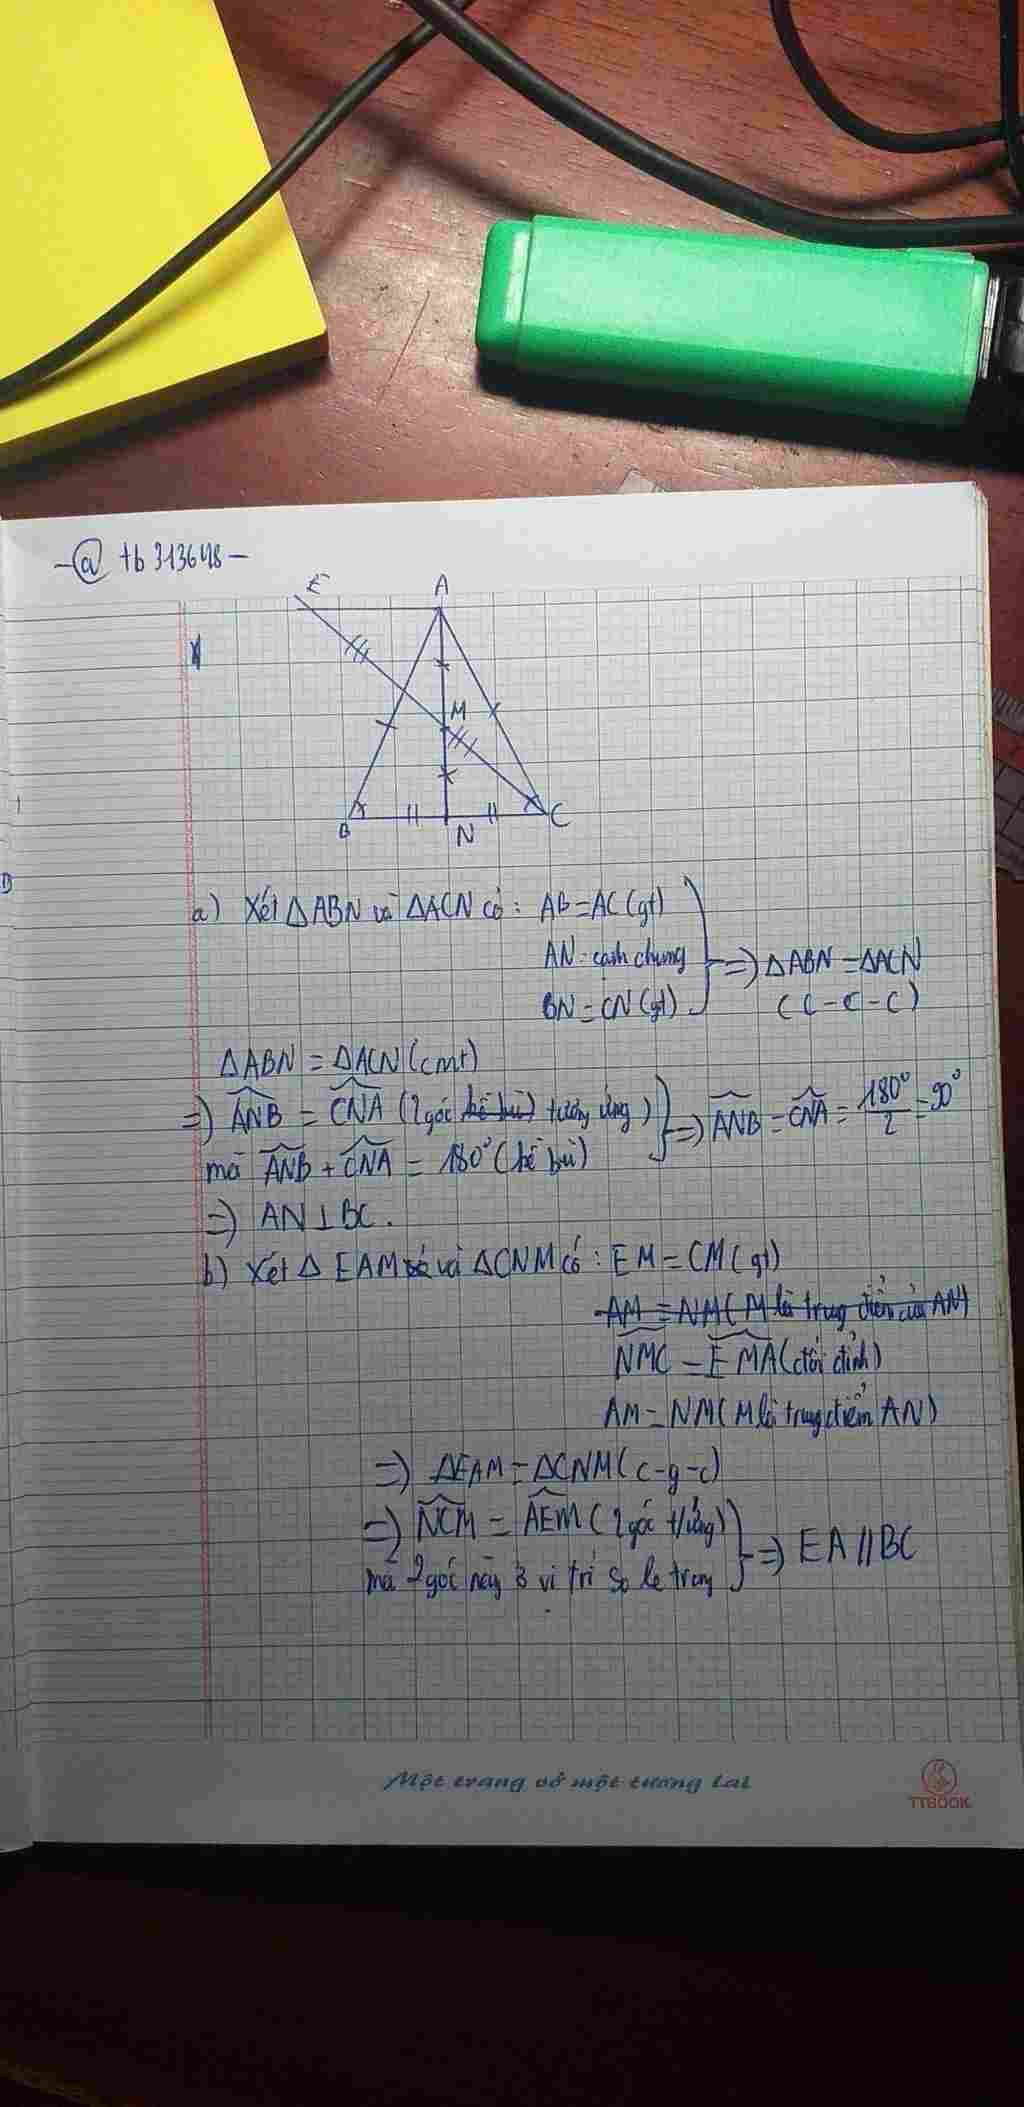 -@ tb 313648-
E A
M
B N C
a) Xét ΔABN và ΔACN có: AB=AC(gt)
AN=cạnh chung
BN=CN(gt)
=> ΔABN=ΔACN
(c-c-c)
ΔABN=ΔACN(cmt)
=> ANB = CNA (2góc kề bù tương ứng)
mà ANB+CNA=180°(kề bù)
=> ANB=CNA=180°/2=90°
=> AN⊥BC.
b) Xét Δ EAM và ΔCNM có: EM=CM(gt)
AM=NM(M là trung điểm của AN)
NMC=EMA(đối đỉnh)
AM=NM(M là trung điểm AN)
=> ΔEAM=ΔCNM(c-g-c)
=> NCM=AEM(2góc t/ứng)
mà 2góc này ở vị trí so le trong
=> EA//BC
Một trang vở một tương lai
TTBOOK